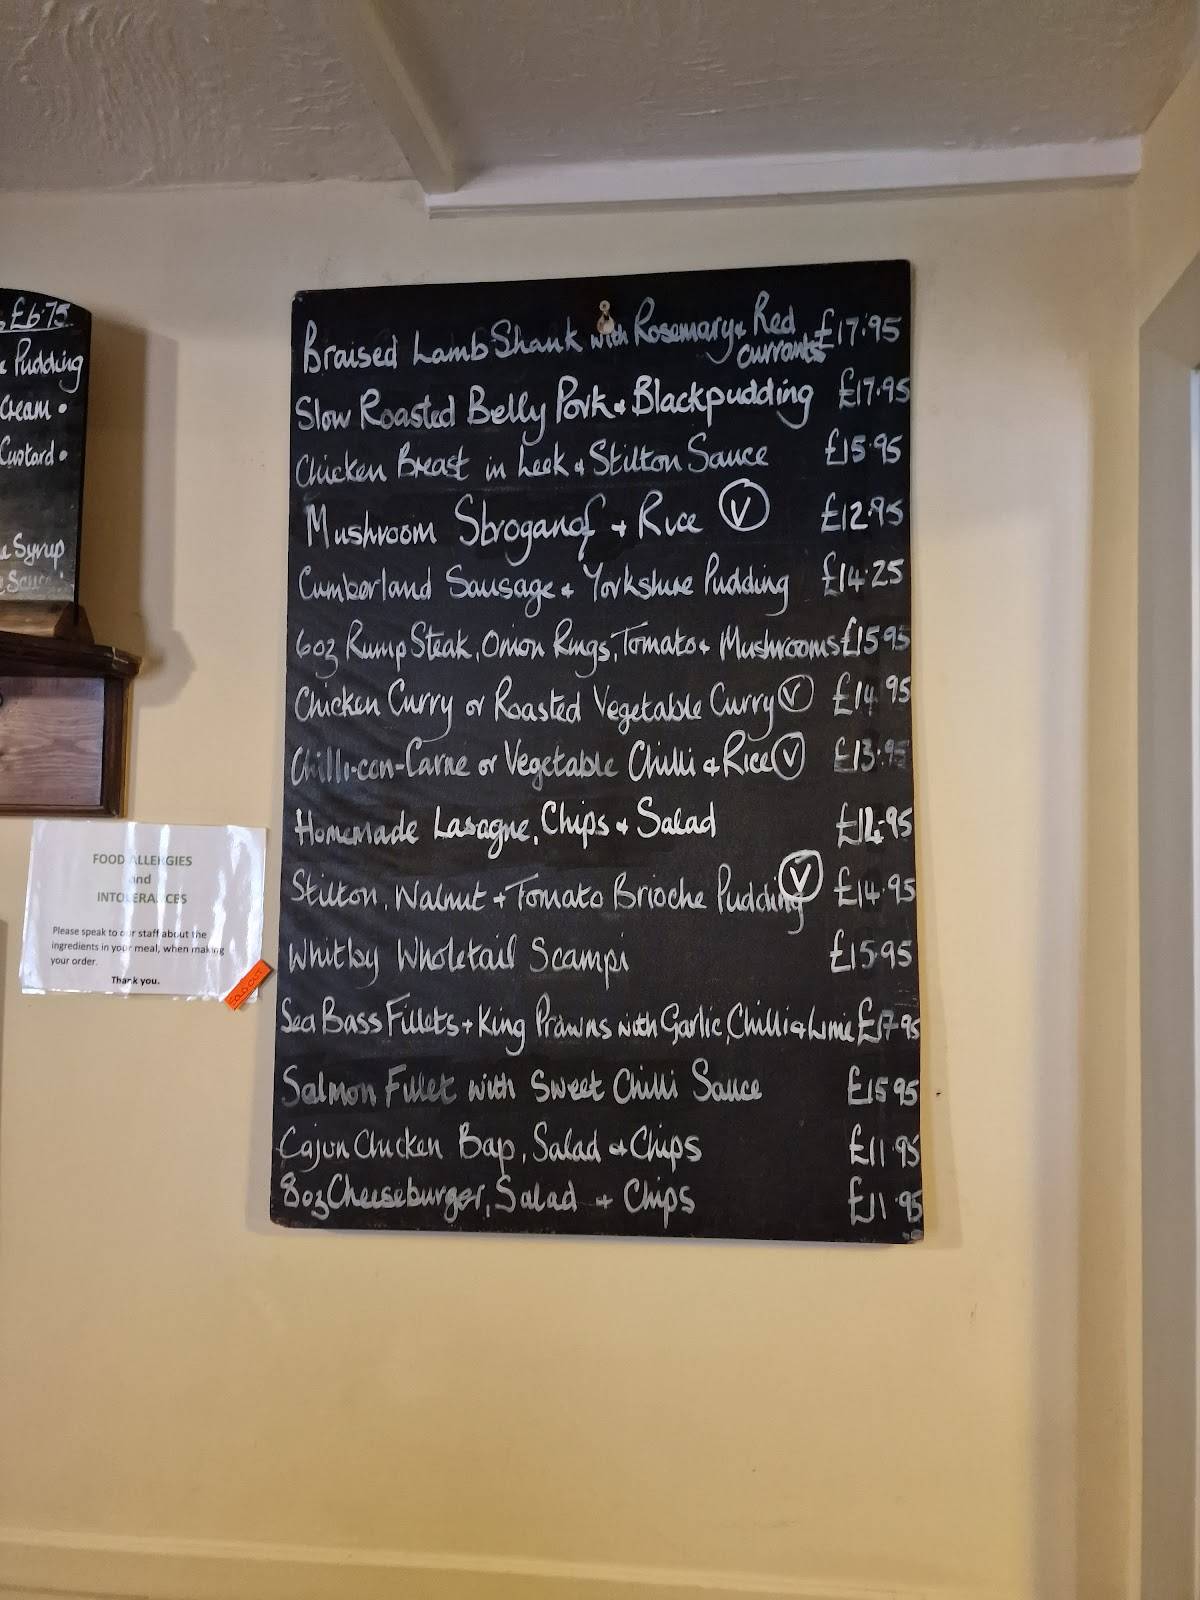 £6.75
Pudding
Cream •
Custard •
Syrup
Sauce
FOOD ALLERGIES
and
INTOLERANCES
Please speak to our staff about the
ingredients in your meal, when making
your order.
Thank you.
SOLD OUT
Braised Lamb Shank with Rosemary & Red Currants £17.95
Slow Roasted Belly Pork & Blackpudding £17.95
Chicken Breast in Leek & Stilton Sauce £15.95
Mushroom Stroganof + Rice V £12.95
Cumberland Sausage & Yorkshire Pudding £14.25
6oz Rump Steak, Onion Rings, Tomato & Mushrooms £15.95
Chicken Curry or Roasted Vegetable Curry V £14.95
Chilli-con-Carne or Vegetable Chilli & Rice V £13.95
Homemade Lasagne, Chips & Salad £14.95
Stilton, Walnut + Tomato Brioche Pudding V £14.95
Whitby Wholetail Scampi £15.95
Sea Bass Fillets + King Prawns with Garlic, Chilli & Lime £17.95
Salmon Fillet with Sweet Chilli Sauce £15.95
Cajun Chicken Bap, Salad & Chips £11.95
8oz Cheeseburger, Salad + Chips £11.95